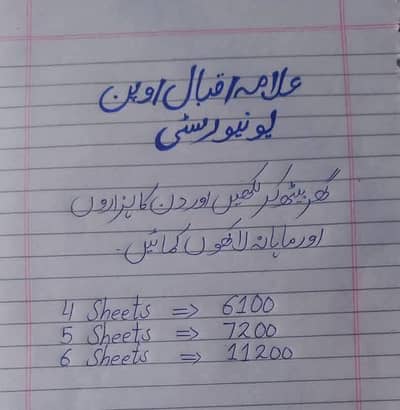 علامہ اقبال اوپن
یونیورسٹی
گھر بیٹھ کر لکھیں اور دن کا ہزاروں
اور ماہانہ لاکھوں کمائیں۔
4 Sheets => 6100
5 Sheets => 7200
6 Sheets => 11200